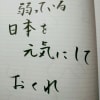 弱っている
日本を
元気にして
おくれ